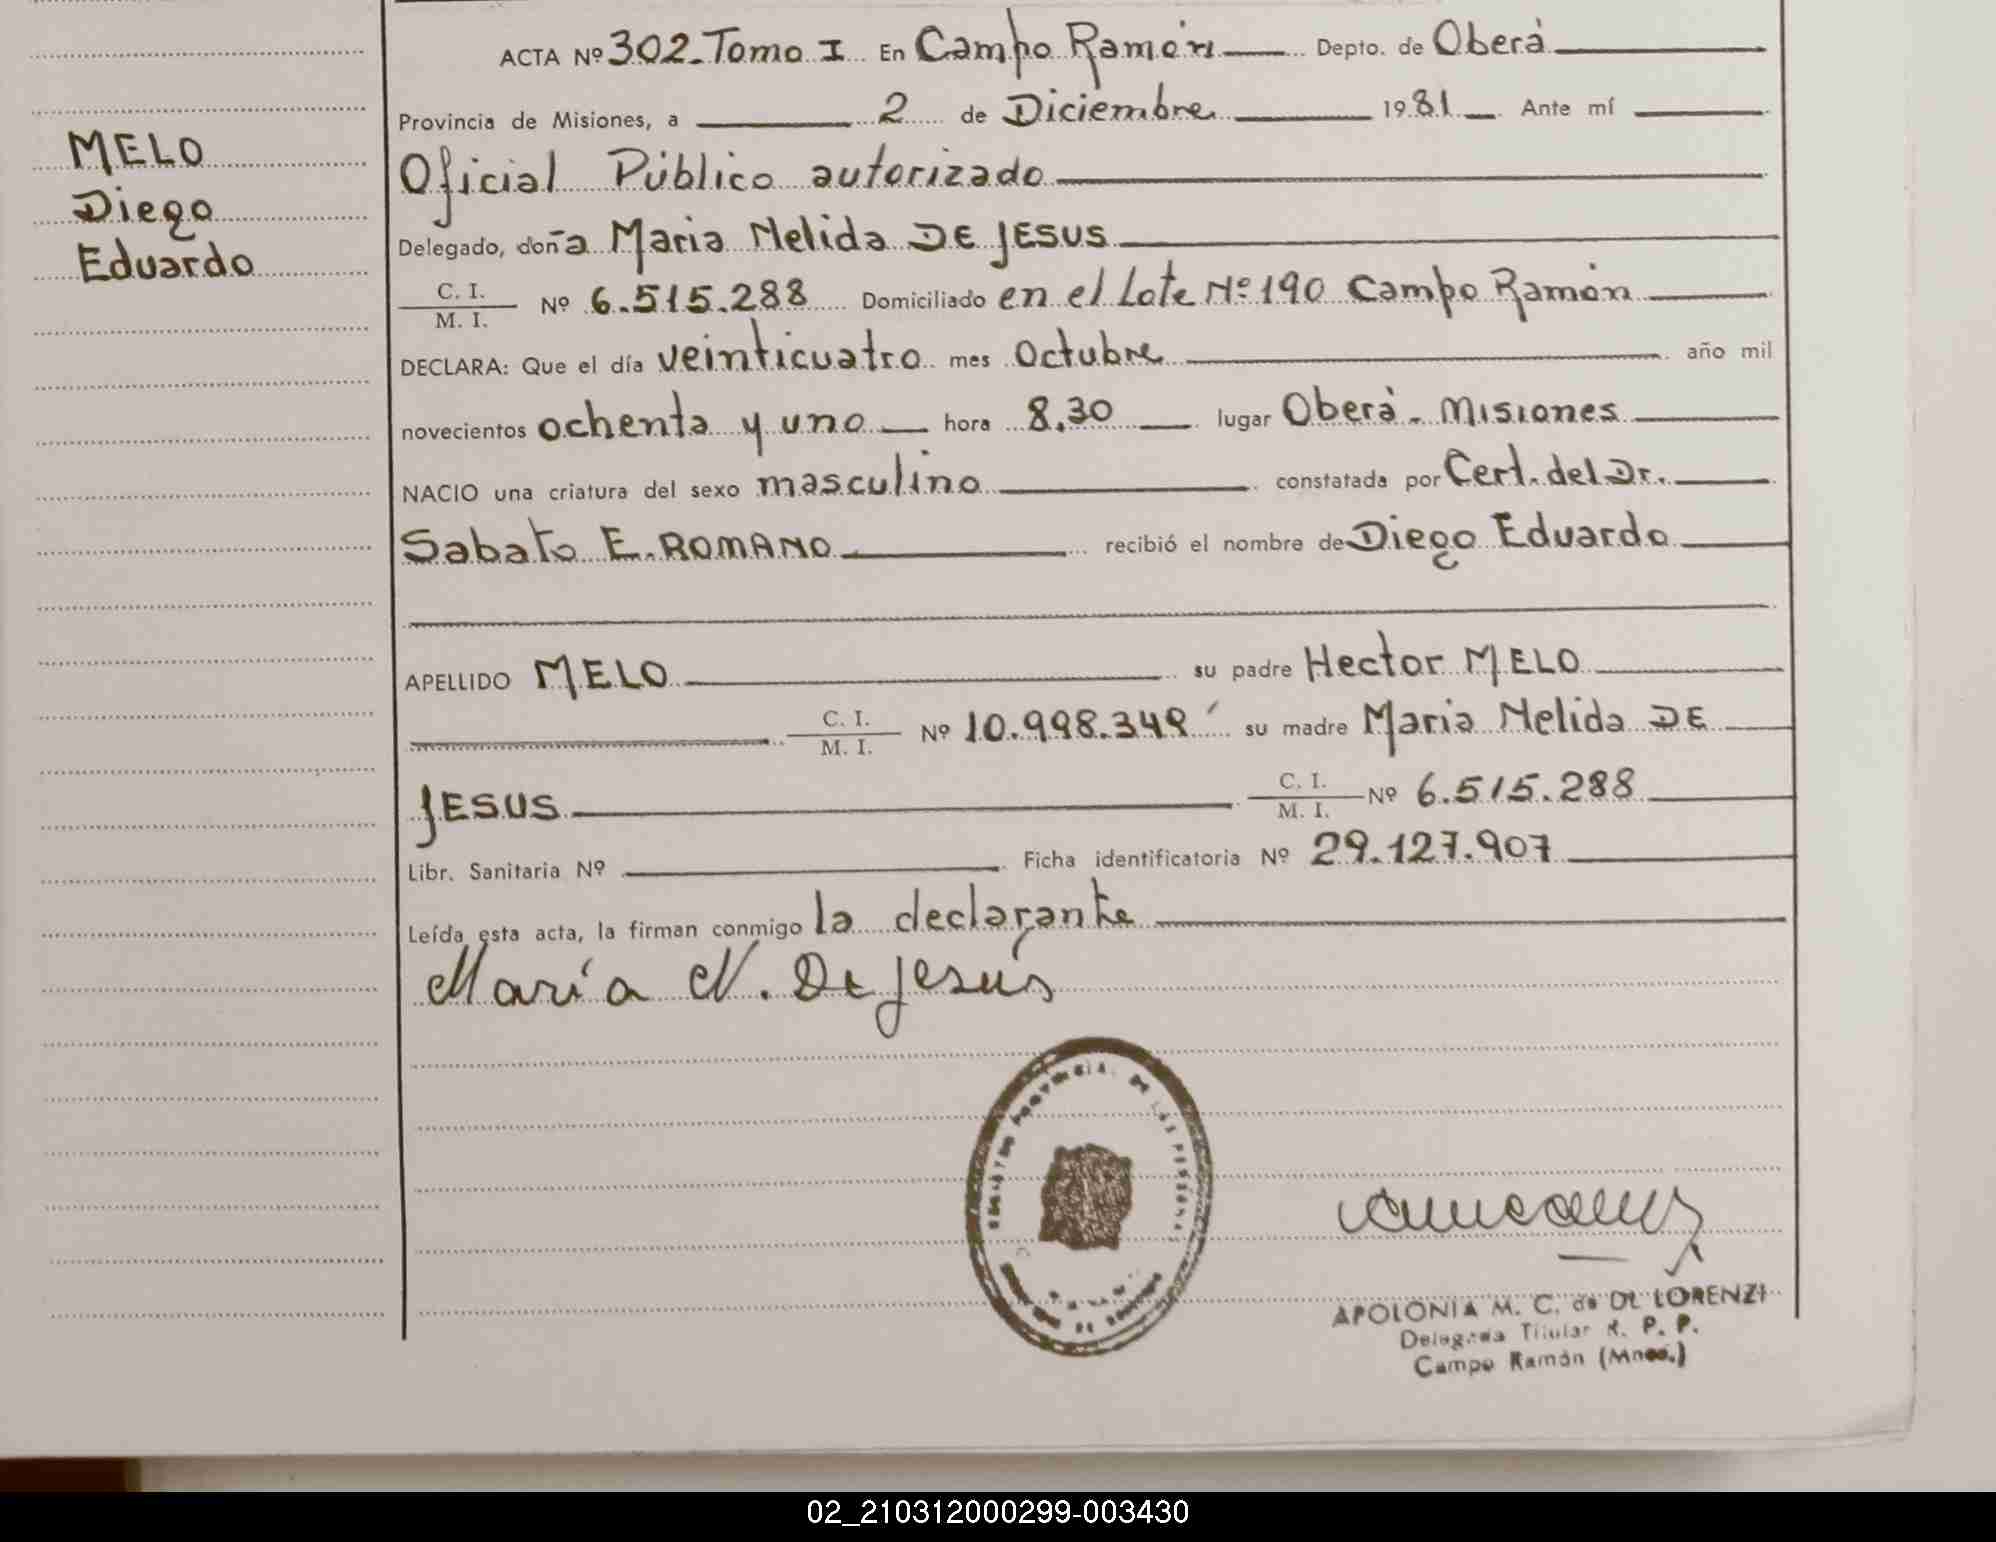 ACTA Nº 302 - Tomo I En Campo Ramón Depto. de Oberá
Provincia de Misiones, a 2 de Diciembre 1981 Ante mí
MELO
Oficial Público autorizado
Diego
Delegado, doña Maria Nelida DE JESUS
Eduardo
C. I.
M. I. Nº 6.515.288 Domiciliado en el Lote Nº 190 Campo Ramón
DECLARA: Que el día veinticuatro mes Octubre año mil
novecientos ochenta y uno hora 8,30 lugar Oberá - Misiones
NACIO una criatura del sexo masculino constatada por Cert. del Dr.
Sabato E. ROMANO recibió el nombre de Diego Eduardo
APELLIDO MELO su padre Hector MELO
C. I.
M. I. Nº 10.998.349 su madre Maria Nelida DE
JESUS C. I.
M. I. Nº 6.515.288
Libr. Sanitaria Nº Ficha identificatoria Nº 29.127.907
Leída esta acta, la firman conmigo la declarante
María N. De Jesús
APOLONIA M. C. de DE LORENZI
Delegada Titular R. P. P.
Campo Ramón (Mnes.)
02_210312000299-003430